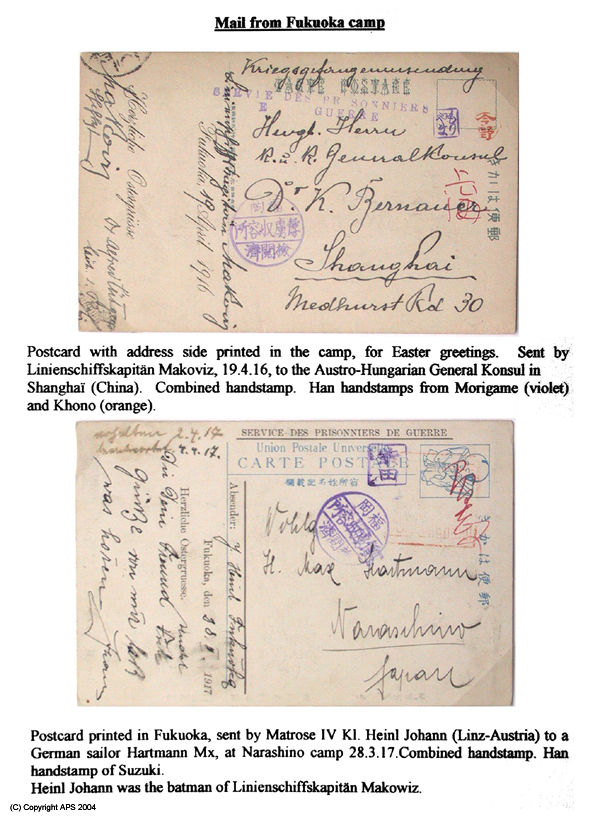 Mail from Fukuoka camp
Kriegsgefangenensendung
CARTE POSTALE
SERVIE DES PRISONNIERS
E GUERRE
Herrn
K. u. K. Generalkonsul
Dr. K. Bernauer
Shanghai
Medhurst Rd 30
きかは便郵
福岡
俘虜収容所
検閲済
Herzliche Ostergrüsse
Fukuoka 19 April 1916
Makoviz
Postcard with address side printed in the camp, for Easter greetings. Sent by
Linienschiffskapitän Makoviz, 19.4.16, to the Austro-Hungarian General Konsul in
Shanghaï (China). Combined handstamp. Han handstamps from Morigame (violet)
and Khono (orange).
SERVICE DES PRISONNIERS DE GUERRE
Union Postale Universelle
CARTE POSTALE
2.4.17
4.4.17.
きかは便郵
H. Max Hartmann
Naraschino
Japan
Absender: J. Heinl Fukuoka
Fukuoka, den 28. 1917
Herzliche Ostergruesse.
Grüße von mir
was hören
Franz
Postcard printed in Fukuoka, sent by Matrose IV Kl. Heinl Johann (Linz-Austria) to a
German sailor Hartmann Mx, at Narashino camp 28.3.17.Combined handstamp. Han
handstamp of Suzuki.
Heinl Johann was the batman of Linienschiffskapitän Makowiz.
(C) Copyright APS 2004